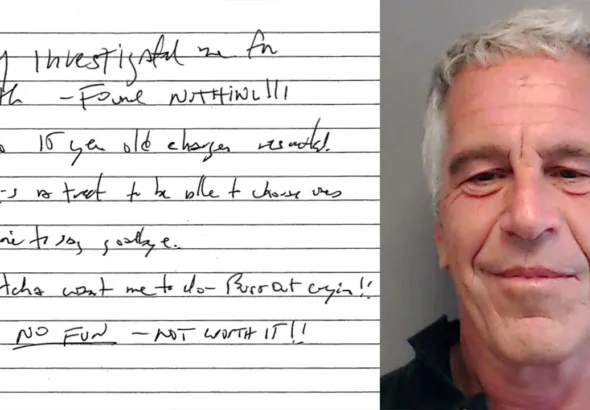 investigated me for
– Found NOTHING!!!
15 year old charges resulted.
a treat to be able to choose
to say goodbye.
want me to do – Burst out cryin!!
NO FUN – NOT WORTH IT!!